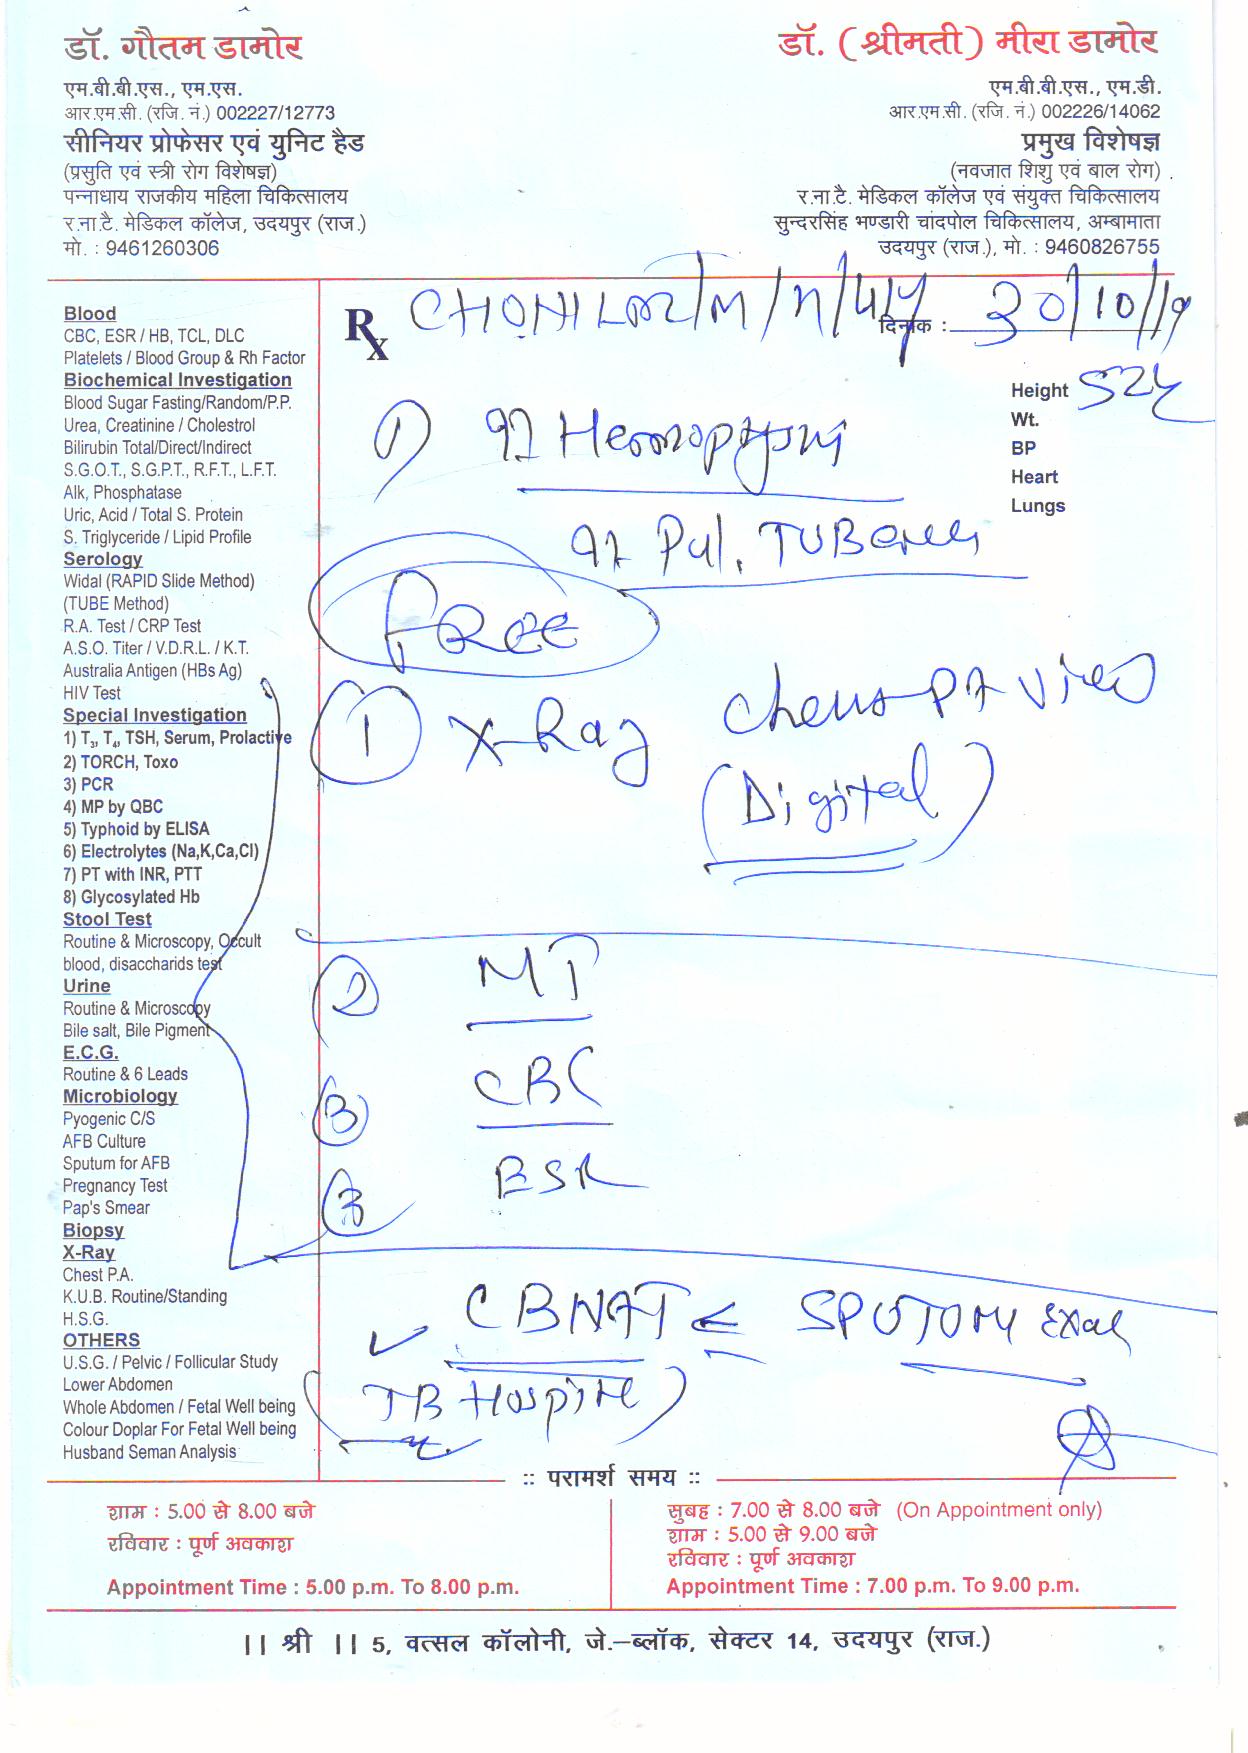 डॉ. गौतम डामोर
एम.बी.बी.एस., एम.एस.
आर.एम.सी. (रजि. नं.) 002227/12773
सीनियर प्रोफेसर एवं युनिट हैड
(प्रसुति एवं स्त्री रोग विशेषज्ञ)
पन्नाधाय राजकीय महिला चिकित्सालय
र.ना.टै. मेडिकल कॉलेज, उदयपुर (राज.)
मो. : 9461260306
डॉ. (श्रीमती) मीरा डामोर
एम.बी.बी.एस., एम.डी.
आर.एम.सी. (रजि. नं.) 002226/14062
प्रमुख विशेषज्ञ
(नवजात शिशु एवं बाल रोग)
र.ना.टै. मेडिकल कॉलेज एवं संयुक्त चिकित्सालय
सुन्दरसिंह भण्डारी चांदपोल चिकित्सालय, अम्बामाता
उदयपुर (राज.), मो. : 9460826755
Blood
CBC, ESR / HB, TCL, DLC
Platelets / Blood Group & Rh Factor
Biochemical Investigation
Blood Sugar Fasting/Random/P.P.
Urea, Creatinine / Cholestrol
Bilirubin Total/Direct/Indirect
S.G.O.T., S.G.P.T., R.F.T., L.F.T.
Alk, Phosphatase
Uric, Acid / Total S. Protein
S. Triglyceride / Lipid Profile
Serology
Widal (RAPID Slide Method)
(TUBE Method)
R.A. Test / CRP Test
A.S.O. Titer / V.D.R.L. / K.T.
Australia Antigen (HBs Ag)
HIV Test
Special Investigation
1) T3, T4, TSH, Serum, Prolactive
2) TORCH, Toxo
3) PCR
4) MP by QBC
5) Typhoid by ELISA
6) Electrolytes (Na,K,Ca,Cl)
7) PT with INR, PTT
8) Glycosylated Hb
Stool Test
Routine & Microscopy, Occult
blood, disaccharids test
Urine
Routine & Microscopy
Bile salt, Bile Pigment
E.C.G.
Routine & 6 Leads
Microbiology
Pyogenic C/S
AFB Culture
Sputum for AFB
Pregnancy Test
Pap's Smear
Biopsy
X-Ray
Chest P.A.
K.U.B. Routine/Standing
H.S.G.
OTHERS
U.S.G. / Pelvic / Follicular Study
Lower Abdomen
Whole Abdomen / Fetal Well being
Colour Doplar For Fetal Well being
Husband Seman Analysis
Rx
दिनांक : 30/10/19
Height
Wt.
BP
Heart
Lungs
1)
Pul.
FREE
1 X-Ray PA View
(Digital)
2 MT
3 CBC
3 ESR
CBNAT
(TB Hospital)
:: परामर्श समय ::
शाम : 5.00 से 8.00 बजे
रविवार : पूर्ण अवकाश
Appointment Time : 5.00 p.m. To 8.00 p.m.
सुबह : 7.00 से 8.00 बजे (On Appointment only)
शाम : 5.00 से 9.00 बजे
रविवार : पूर्ण अवकाश
Appointment Time : 7.00 p.m. To 9.00 p.m.
|| श्री || 5, वत्सल कॉलोनी, जे.–ब्लॉक, सेक्टर 14, उदयपुर (राज.)